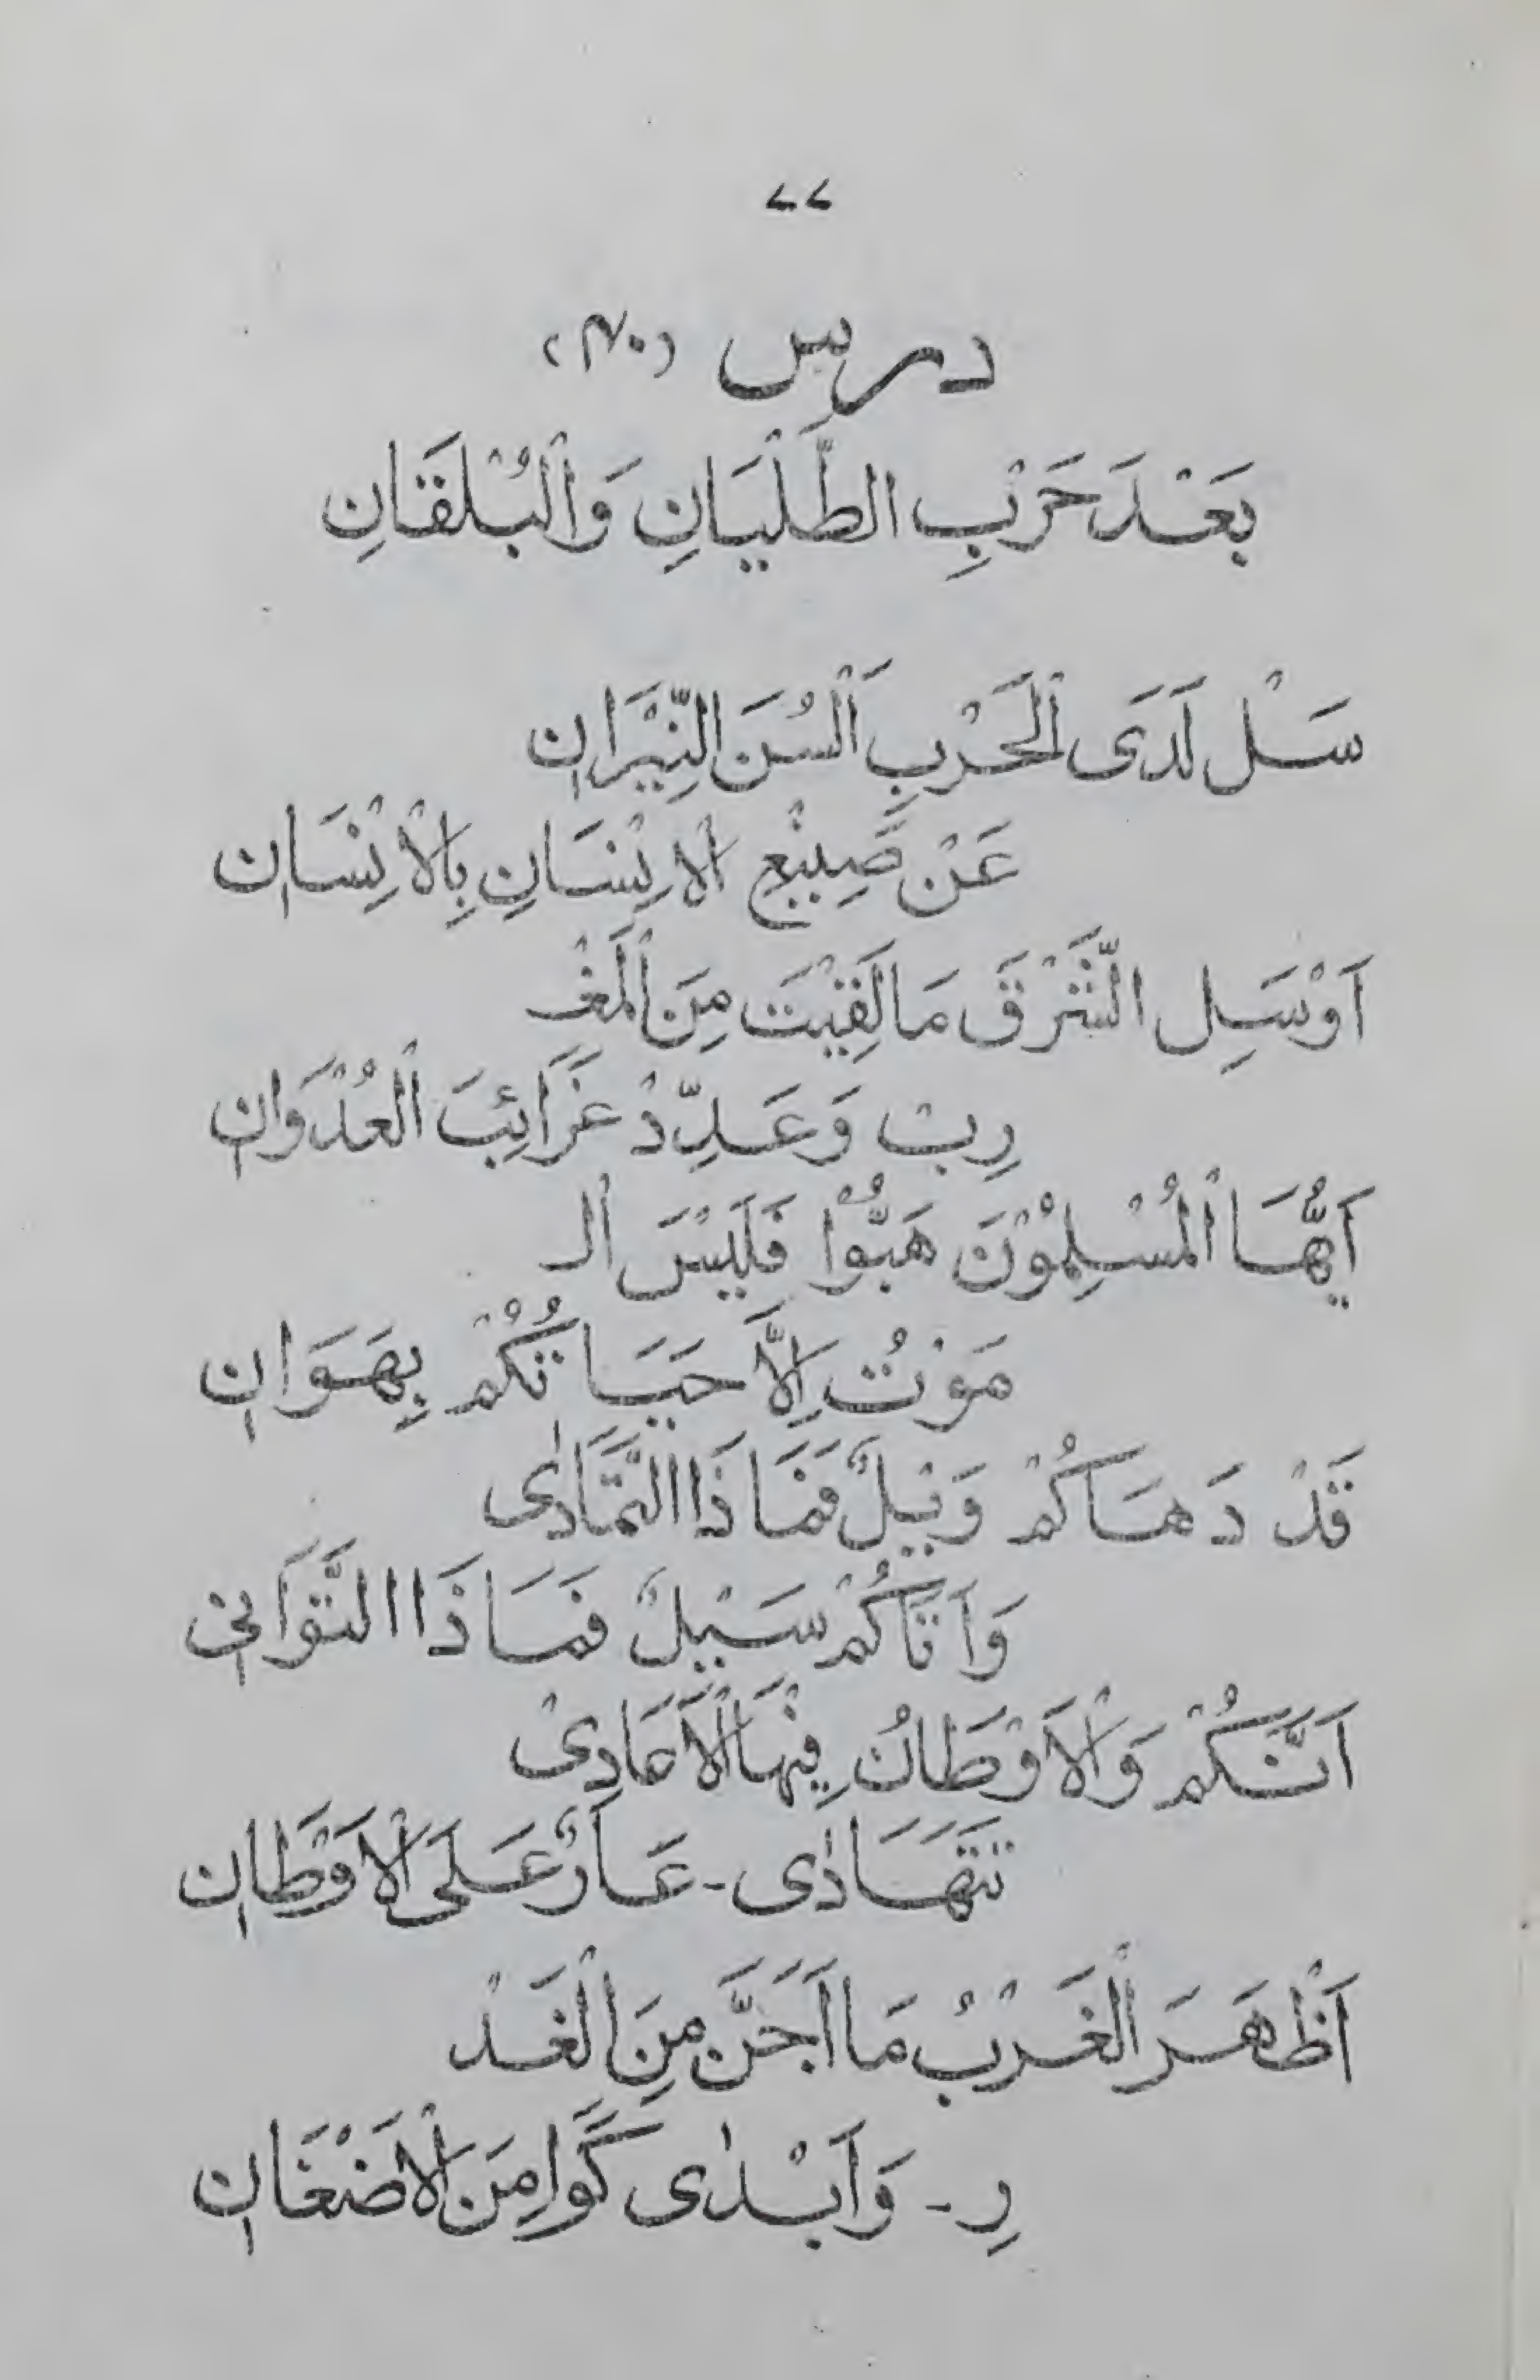 ۷۷
درس (۴۰)
بَعْدَ حَرْبِ الطَّلْيَانِ وَالْبُلْقَانِ
سَلْ لَدَى الْحَرْبِ اَلْسُنَ النِّيْرَانِ
عَنْ صَنِيْعِ الْاِنْسَانِ بِالْاِنْسَانِ
اَوْسَلِ الشَّرْقَ مَا لَقِيْتَ مِنَ الْمَغْـ
رِبْ وَعَدِّدْ غَرَائِبَ الْعُدْوَانِ
اَيُّهَا الْمُسْلِمُوْنَ هَبُّوْا فَلَيْسَ الْـ
مَوْتُ اِلَّا حَيَاتُكُمْ بِهَوَانِ
قَدْ دَهَاكُمْ وَيْلٌ فَمَاذَا التَّمَادٰى
وَاَتَاكُمْ سَيْلٌ فَمَاذَا التَّوَانِىْ
اَنَّكُمْ وَالْاَوْطَانُ فِيْهَا الْاَعَادِىْ
تَتَهَادٰى - عَارٌ عَلَى الْاَوْطَانِ
اَظْهَرَ الْغَرْبُ مَا اَجَنَّ مِنَ الْغَدْ
رِ - وَاَبْدٰى كَوَامِنَ الْاَضْغَانِ